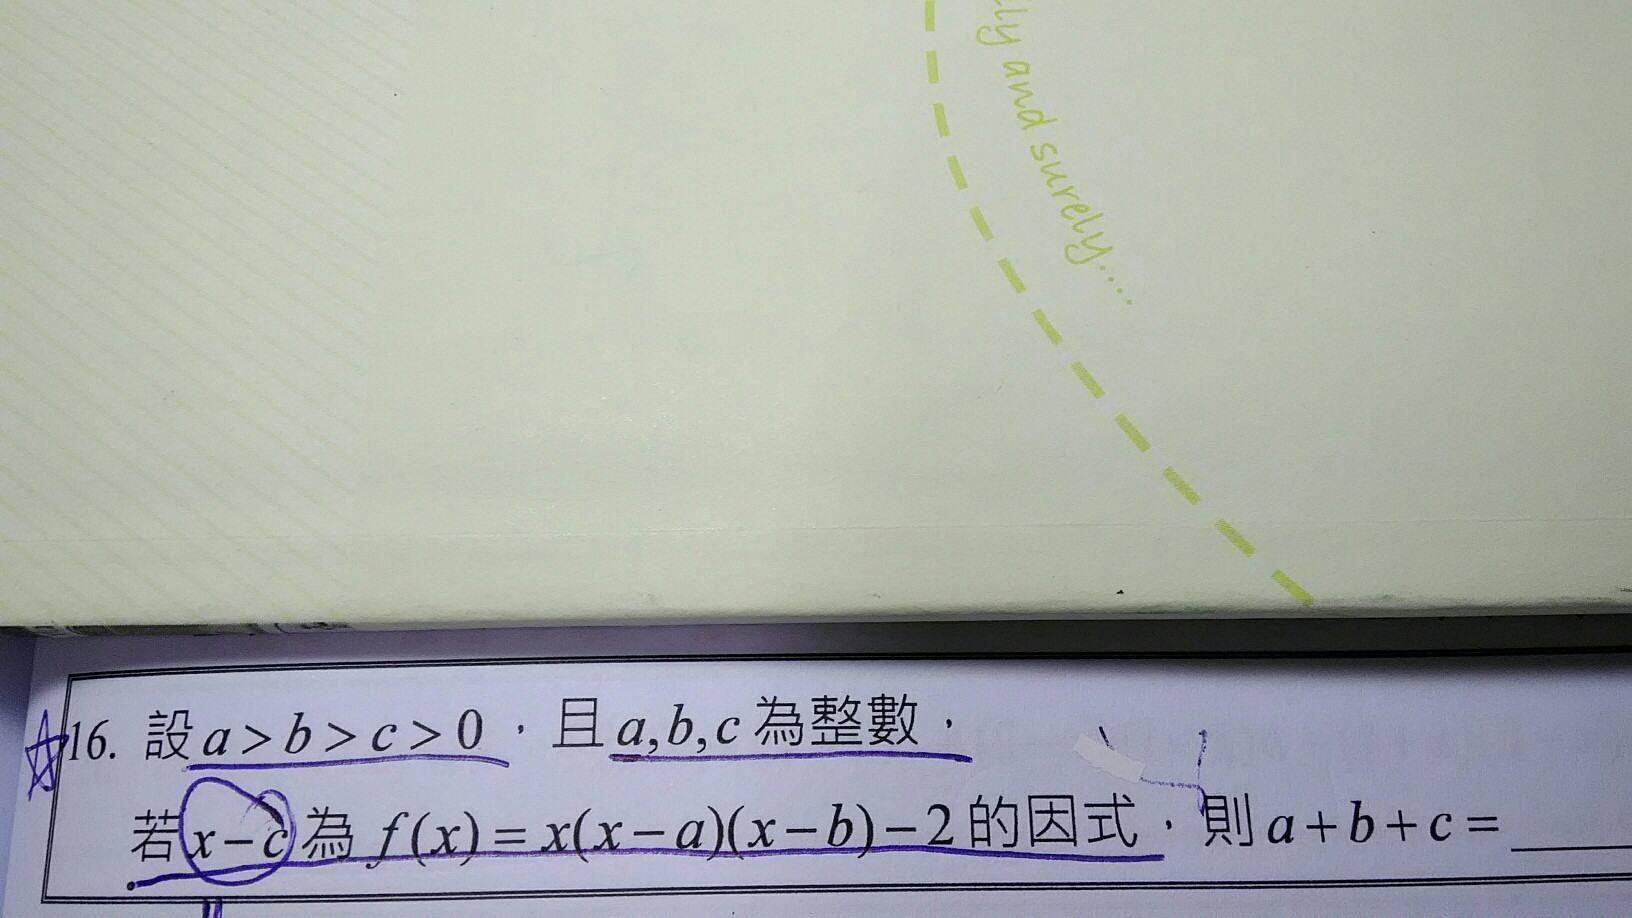 lly and surely....
16. 設 a > b > c > 0，且 a, b, c 為整數，
若 x − c 為 f(x) = x(x − a)(x − b) − 2 的因式，則 a + b + c = ____